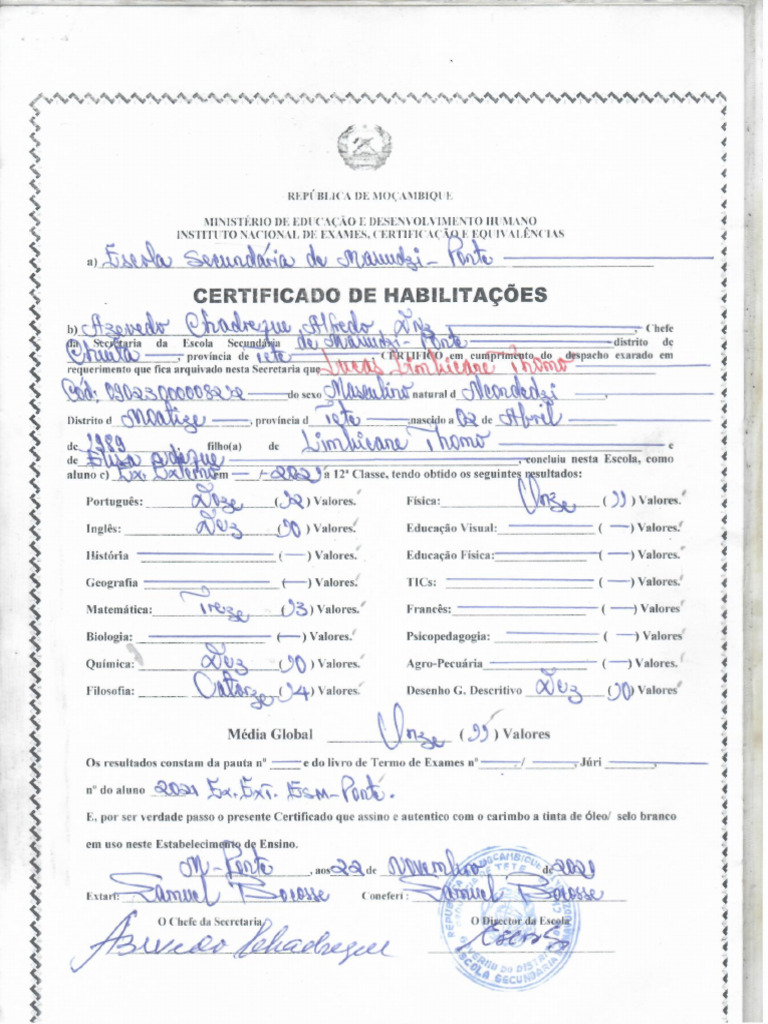 REPÚBLICA DE MOÇAMBIQUE
MINISTÉRIO DE EDUCAÇÃO E DESENVOLVIMENTO HUMANO
INSTITUTO NACIONAL DE EXAMES, CERTIFICAÇÃO E EQUIVALÊNCIAS
a) Escola Secundária de Mamudzi - Ponte
CERTIFICADO DE HABILITAÇÕES
b) Azevedo Chadreque Alfredo Diz, Chefe
da Secretaria da Escola Secundária de Mamudzi - Ponte distrito de
Chiuta, província de Tete CERTIFICO em cumprimento do despacho exarado em
requerimento que fica arquivado nesta Secretaria que Lucas Limbicane Thomo
Cód: do sexo Masculino natural d Ncondedzi,
Distrito d Moatize, província d Tete, nascido a 02 de Abril
de 1989 filho(a) de Limbicane Thomo e
de Eliza, concluiu nesta Escola, como
aluno c) Ex. Externo em 2021 a 12ª Classe, tendo obtido os seguintes resultados:
Português: Doze (12) Valores. Física: Onze (11) Valores.
Inglês: Dez (10) Valores. Educação Visual: ( ) Valores.
História ( ) Valores. Educação Física: ( ) Valores.
Geografia ( ) Valores. TICs: ( ) Valores.
Matemática: Treze (13) Valores. Francês: ( ) Valores
Biologia: ( ) Valores. Psicopedagogia: ( ) Valores
Química: Dez (10) Valores. Agro-Pecuária ( ) Valores.
Filosofia: Catorze (14) Valores. Desenho G. Descritivo Dez (10) Valores
Média Global Onze (11) Valores
Os resultados constam da pauta nº e do livro de Termo de Exames nº / , Júri
nº do aluno 2021 Ex. Ext. ESM-Ponte.
E, por ser verdade passo o presente Certificado que assino e autentico com o carimbo a tinta de óleo/ selo branco
em uso neste Estabelecimento de Ensino.
M-Ponte, aos 22 de Novembro de 2021
Extarf: Samuel Bocosse Conferi: Samuel Bocosse
O Chefe da Secretaria O Director da Escola
Azevedo Chadreque